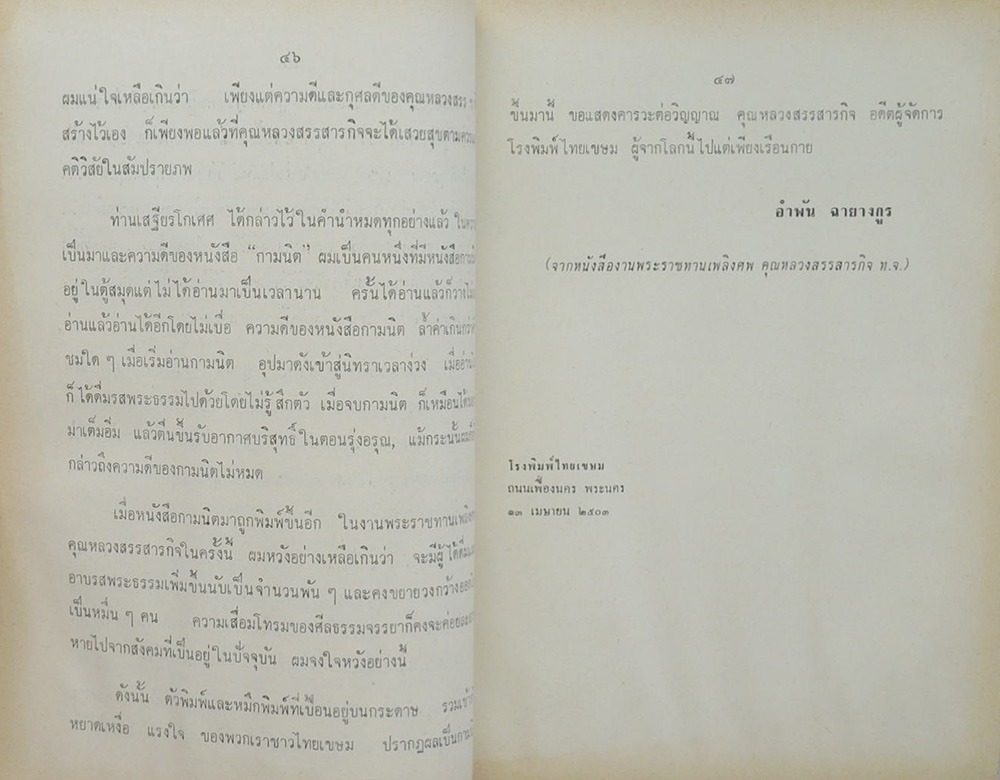 ๔๖
ผมแน่ใจเหลือเกินว่า เพียงแต่ความดีและกุศลดีของคุณหลวงสรรฯ
สร้างไว้เอง ก็เพียงพอแล้วที่คุณหลวงสรรสารกิจจะได้เสวยสุขตาม
คติวิสัยในสัมปรายภพ
ท่านเสฐียรโกเศศ ได้กล่าวไว้ในคำนำหมดทุกอย่างแล้ว
เป็นมาและความดีของหนังสือ “กามนิต” ผมเป็นคนหนึ่งที่มีหนังสือ
อยู่ในตู้สมุดแต่ไม่ได้อ่านมาเป็นเวลานาน ครั้นได้อ่านแล้วก็วาง
อ่านแล้วอ่านได้อีกโดยไม่เบื่อ ความดีของหนังสือกามนิต ล้ำค่าเกิน
ชมใด ๆ เมื่อเริ่มอ่านกามนิต อุปมาดังเข้าสู่นิทราเวลาง่วง เมื่อ
ก็ได้ดื่มรสพระธรรมไปด้วยโดยไม่รู้สึกตัว เมื่อจบกามนิต ก็เหมือน
มาเต็มอิ่ม แล้วตื่นขึ้นรับอากาศบริสุทธิ์ในตอนรุ่งอรุณ, แม้กระนั้น
กล่าวถึงความดีของกามนิตไม่หมด
เมื่อหนังสือกามนิตมาถูกพิมพ์ขึ้นอีก ในงานพระราชทานเพลิง
คุณหลวงสรรสารกิจในครั้งนี้ ผมหวังอย่างเหลือเกินว่า จะมีผู้
อาบรสพระธรรมเพิ่มขึ้นนับเป็นจำนวนพัน ๆ และคงขยายวงกว้าง
เป็นหมื่น ๆ คน ความเสื่อมโทรมของศีลธรรมจรรยาก็คงจะค่อย
หายไปจากสังคมที่เป็นอยู่ในปัจจุบัน ผมจงใจหวังอย่างนี้
ดังนั้น ตัวพิมพ์และหมึกพิมพ์ที่เปื้อนอยู่บนกระดาษ
หยาดเหงื่อ แรงใจ ของพวกเราชาวไทยเขษม ปรากฏผลเป็น
๔๗
ขึ้นมานี้ ขอแสดงคารวะต่อวิญญาณ คุณหลวงสรรสารกิจ อดีตผู้จัดการ
โรงพิมพ์ไทยเขษม ผู้จากโลกนี้ไปแต่เพียงเรือนกาย
อำพัน ฉายางกูร
(จากหนังสืองานพระราชทานเพลิงศพ คุณหลวงสรรสารกิจ ท.จ.)
โรงพิมพ์ไทยเขษม
ถนนเฟื่องนคร พระนคร
๑๓ เมษายน ๒๕๐๓